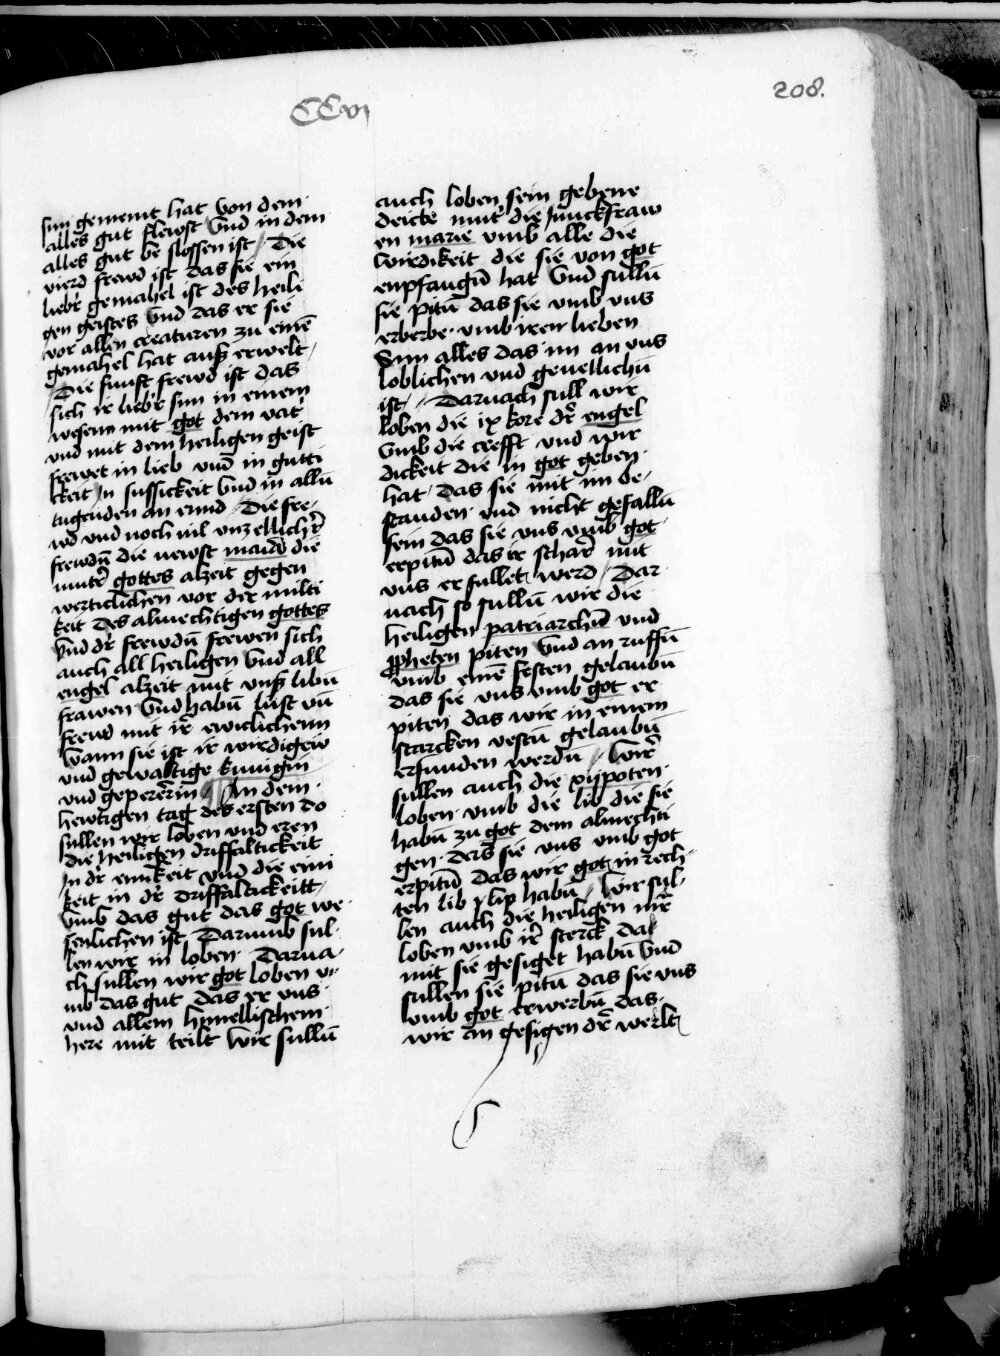 CCvi
208.
sun gemeint hat von dem
alles gut flewst Vnd in dem
alles gut be slossen ist / Die
vierd frewd ist das sie ein
liebe gemahel ist des heili
gen geistes Vnd das er sie
vor allen creaturen zu einē
gemahel hat auß erwelt /
Die funft frewd ist das
sich ir liebr sun in einem
wesenn mit got dem vatr
vnd mit dem heiligen geist
frewet in lieb vnd in gutti
keit Jn sussickeit Vnd in allñ
tugenden an ennd / Die fre
wd vnd noch vil vnzellichr
frewdñ die newst maria die
mutr gottes alzeit gegen
werticlichen vor der milti
keit des almechtigen gottes
Vnd dr frewdñ frewen sich
auch all heiligen Vnd all
engel alzeit mit vnß libñ
frawen Vnd habñ lust vñ
frewd mit ir ewiclichenn
Wann sie ist ir wirdigew
vnd gewaltige kunigin
vnd gepererin An dem
hewtigen tag des ersten do
sullen wir loben vnd eren
die heiligen driffaltickeit
Jn dr einikeit vnd die eini
keit in dr driffaltickeitt /
Vmb das gut das got we
senlichen ist Darumb sul
len wir in loben Darna
ch sullen wir got loben v
mb das gut das er vns
vnd allem hymellischem
here mit teilt Wir sullñ
auch loben sein gebene
deicte mutr die Junckfraw
en marie vmb alle die
wirdikeit die sie von got
enpfangñ hat Vnd sullñ
sie pitñ das sie vmb vns
erberbe vmb iren lieben
Sun alles das im an vns
loblichen vnd geuellichñ
ist // Darnach sull wir
loben die ix kore dr engel
Vmb die crefft vnd wir
dickeit die in got geben
hat das sie mit im be
standen vnd nicht gefallñ
sein das sie vns vmb got
erpitñ das ir schar mit
vns er fullet werd / Dar
nach so sullñ wir die
heiligen patriarchñ vnd
ppheten piten Vnd an ruffñ
vmb einē festen gelaubñ
das sie vns vmb got er
piten das wir in einem
starcken vestñ gelaubñ
erfunden werdñ // Wir
sullen auch die xijpoten
loben vmb die lib die sie
habñ zu got dem almechti
gen das sie vns vmb got
erpitñ das wir got in rech
ten lib lip habñ / Wir sul
len auch die heiligen mr
loben vmb ir sterck da
mit sie gesiget habñ Vnd
sullen sie pitñ das sie vns
vmb got erwerbñ das
wir an gesigen dr werlt